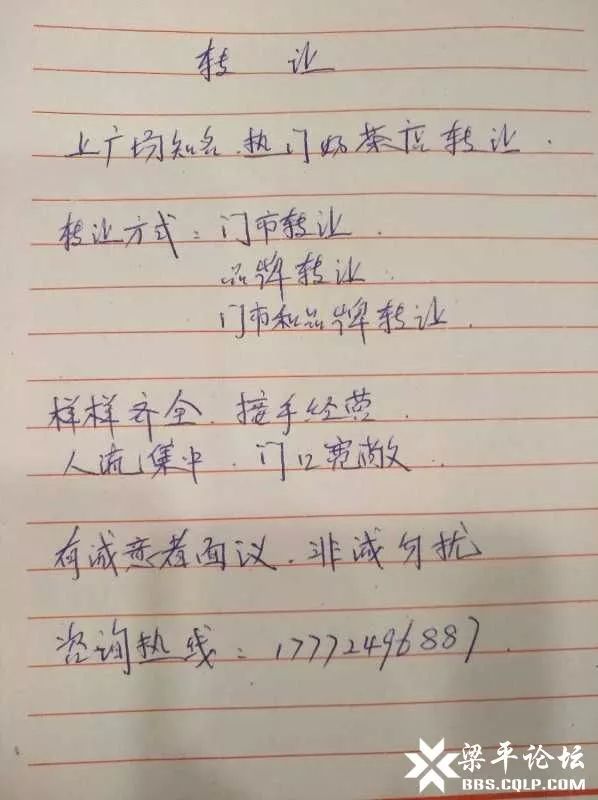 转 让
上广场知名.热门奶茶店转让.
转让方式：门市转让.
品牌转让.
门市和品牌转让.
样样齐全.接手经营.
人流集中.门口宽敞.
有诚意者面议.非诚勿扰
咨询热线：17772496887.
梁平论坛
BBS.CQLP.COM